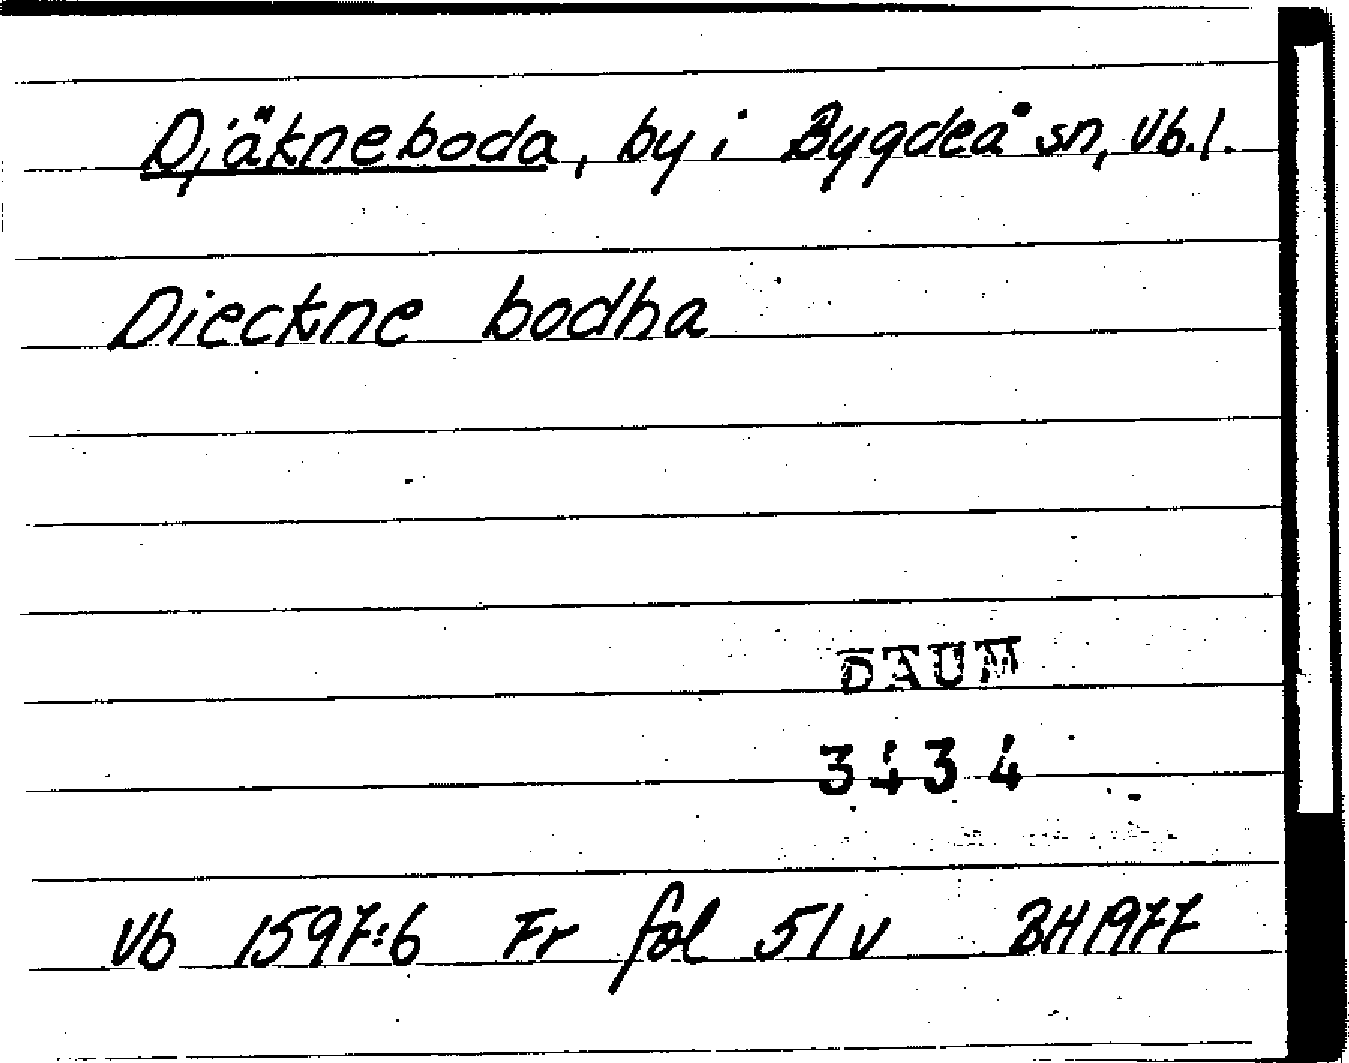 Djäkneboda, by i Bygdeå sn, Vb.l.
Dieckne bodha
DAUM
3434
Vb 1597:6 Fr fol 51 v BH 1977